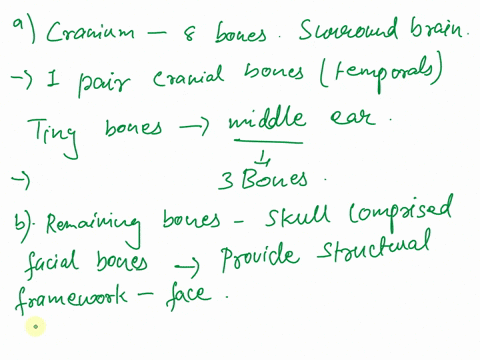 a) Cranium - 8 bones. Surround brain.
-> 1 pair cranial bones (temporals)
Tiny bones -> middle ear.
↓
-> 3 Bones.
b). Remaining bones - Skull comprised
facial bones -> Provide Structural
framework - face.